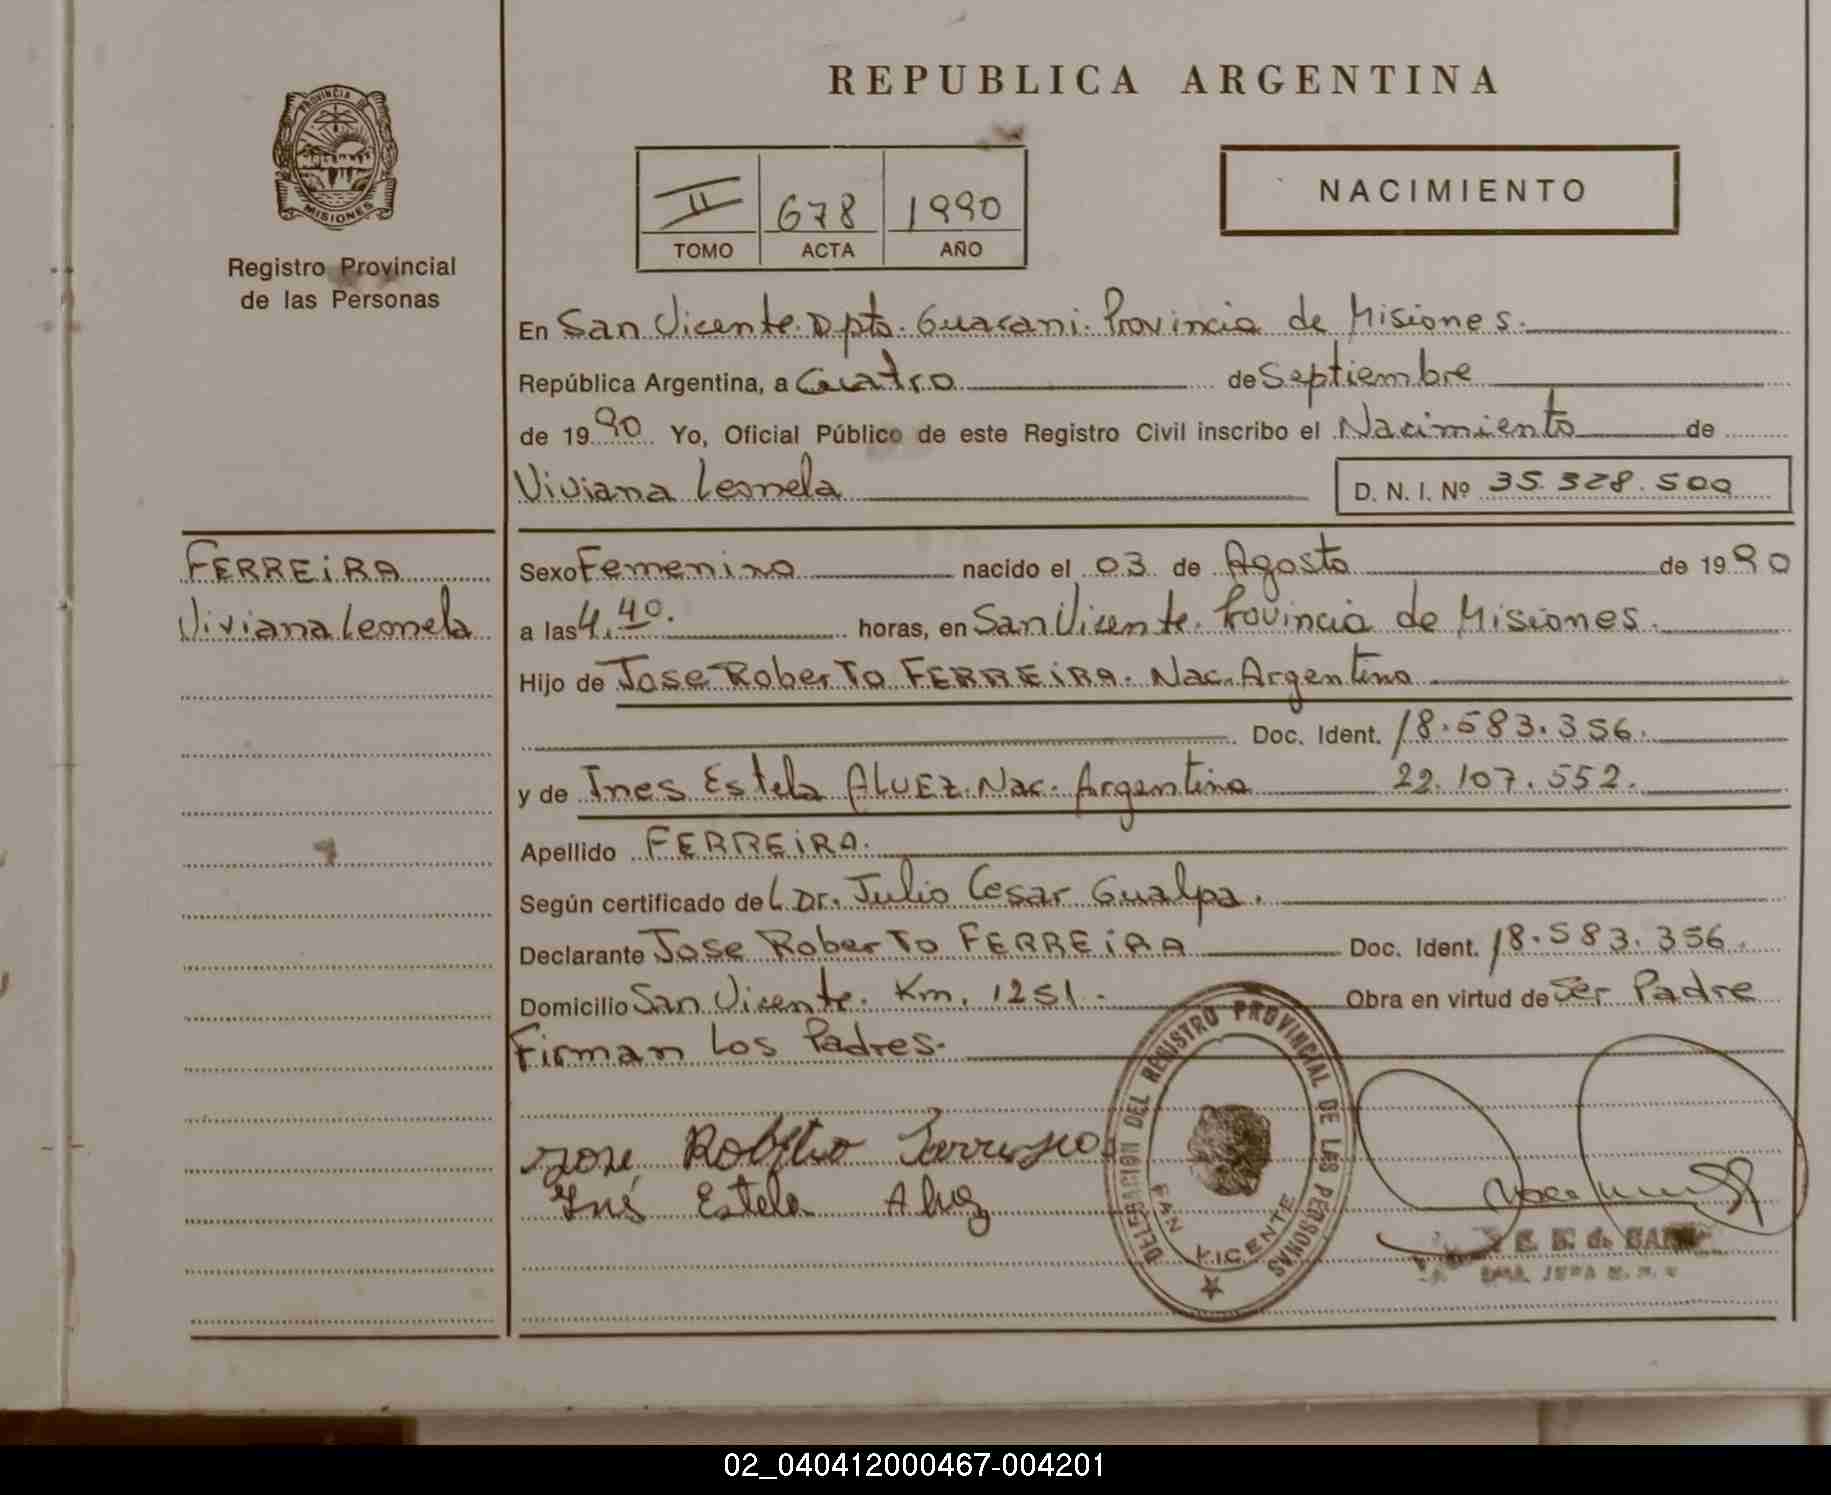 REPUBLICA ARGENTINA
PROVINCIA DE
MISIONES
Registro Provincial
de las Personas
II 678 1990
TOMO ACTA AÑO
NACIMIENTO
En San Vicente. Dpto. Guarani. Provincia de Misiones.
República Argentina, a Cuatro de Septiembre
de 1990 Yo, Oficial Público de este Registro Civil inscribo el Nacimiento de
Viviana Leonela D. N. I. Nº 35.328.500
FERREiRA
Viviana Leonela
Sexo Femenino nacido el 03 de Agosto de 1990
a las 4.40. horas, en San Vicente. Provincia de Misiones.
Hijo de Jose Roberto FERREiRA. Nac. Argentino
Doc. Ident. 18.583.356.
y de Ines Estela ALVEZ. Nac. Argentina 22.107.552.
Apellido FERREiRA.
Según certificado del Dr. Julio Cesar Gualpa.
Declarante Jose Roberto FERREiRA Doc. Ident. 18.583.356.
Domicilio San Vicente. Km. 1251. Obra en virtud de Ser Padre
Firman Los Padres.
José Roberto Ferreira
Inés Estela Alvez
DELEGACION DEL REGISTRO PROVINCIAL DE LAS PERSONAS
SAN VICENTE
02_040412000467-004201